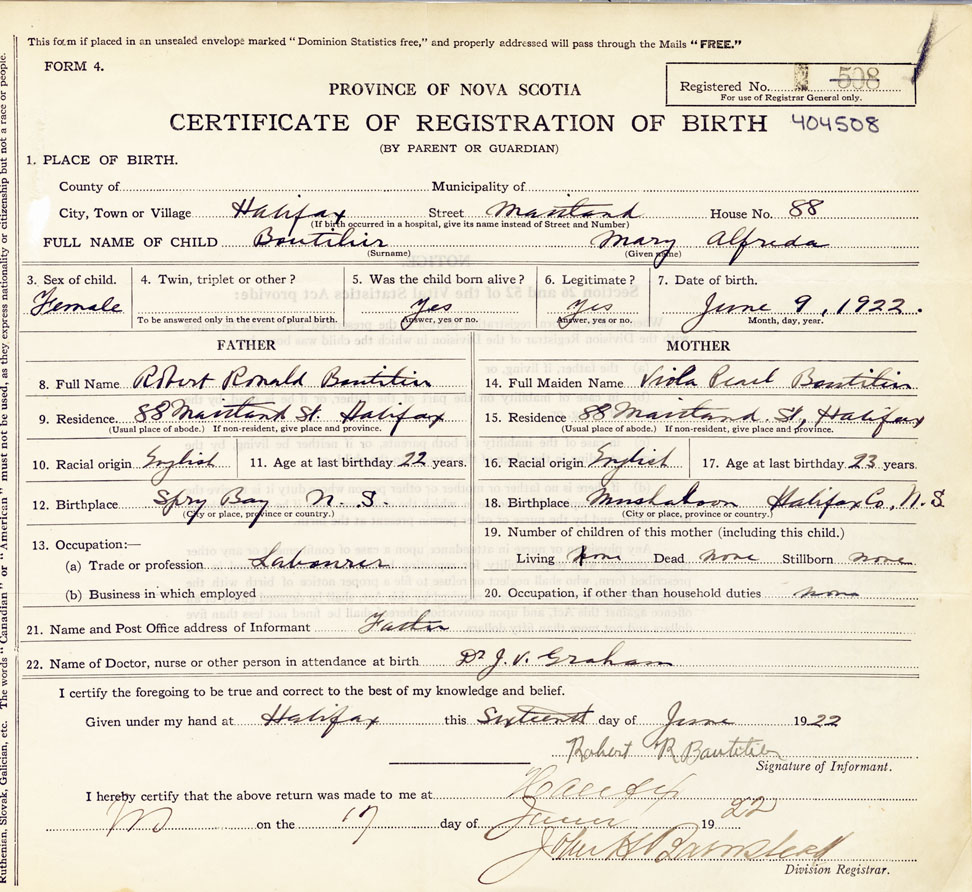 This form if placed in an unsealed envelope marked "Dominion Statistics free," and properly addressed will pass through the Mails "FREE."
FORM 4.
Registered No. 508
For use of Registrar General only.
PROVINCE OF NOVA SCOTIA
CERTIFICATE OF REGISTRATION OF BIRTH 404508
(BY PARENT OR GUARDIAN)
1. PLACE OF BIRTH.
County of Municipality of
City, Town or Village Halifax Street Maitland House No. 88
(If birth occurred in a hospital, give its name instead of Street and Number)
FULL NAME OF CHILD Boutilier Mary Alfreda
(Surname) (Given name)
3. Sex of child. 4. Twin, triplet or other? 5. Was the child born alive? 6. Legitimate? 7. Date of birth.
Female Yes Yes June 9, 1922.
To be answered only in the event of plural birth. Answer, yes or no. Answer, yes or no. Month, day, year.
FATHER MOTHER
8. Full Name Robert Ronald Boutilier 14. Full Maiden Name Viola Pearl Boutilier
9. Residence 88 Maitland St. Halifax 15. Residence 88 Maitland St, Halifax
(Usual place of abode.) If non-resident, give place and province. (Usual place of abode.) If non-resident, give place and province.
10. Racial origin English 11. Age at last birthday 22 years. 16. Racial origin English 17. Age at last birthday 23 years.
12. Birthplace Spry Bay N. S. 18. Birthplace Halifax Co, N. S
(City or place, province or country.) (City or place, province or country.)
19. Number of children of this mother (including this child.)
13. Occupation:—
(a) Trade or profession Labourer Living Dead none Stillborn none
(b) Business in which employed 20. Occupation, if other than household duties none
21. Name and Post Office address of Informant Father
22. Name of Doctor, nurse or other person in attendance at birth Dr J. V. Graham
I certify the foregoing to be true and correct to the best of my knowledge and belief.
Given under my hand at Halifax this Sixteenth day of June 1922
Robert R Boutilier
Signature of Informant.
I hereby certify that the above return was made to me at Halifax
NS on the 17 day of June 1922
John H Barnstead
Division Registrar.
Ruthenian, Slovak, Galician, etc. The words "Canadian" or "American" must not be used, as they express nationality or citizenship but not a race or people.